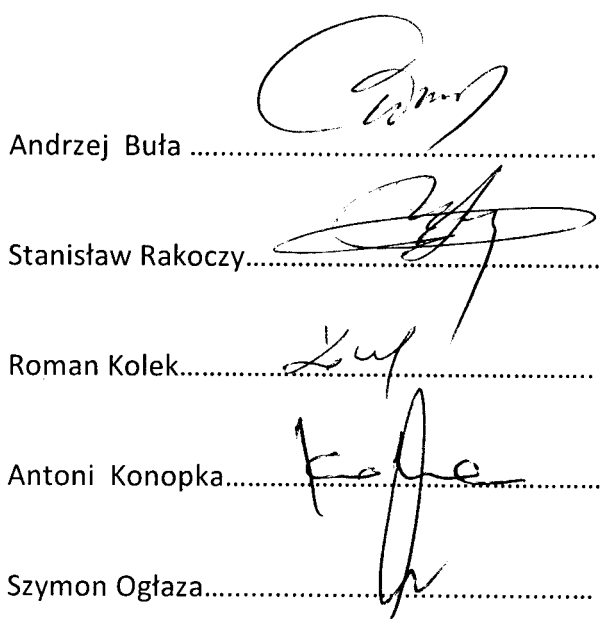 Andrzej Buła ..........................................................
Stanisław Rakoczy..................................................
Roman Kolek...........................................................
Antoni Konopka.....................................................
Szymon Ogłaza.......................................................